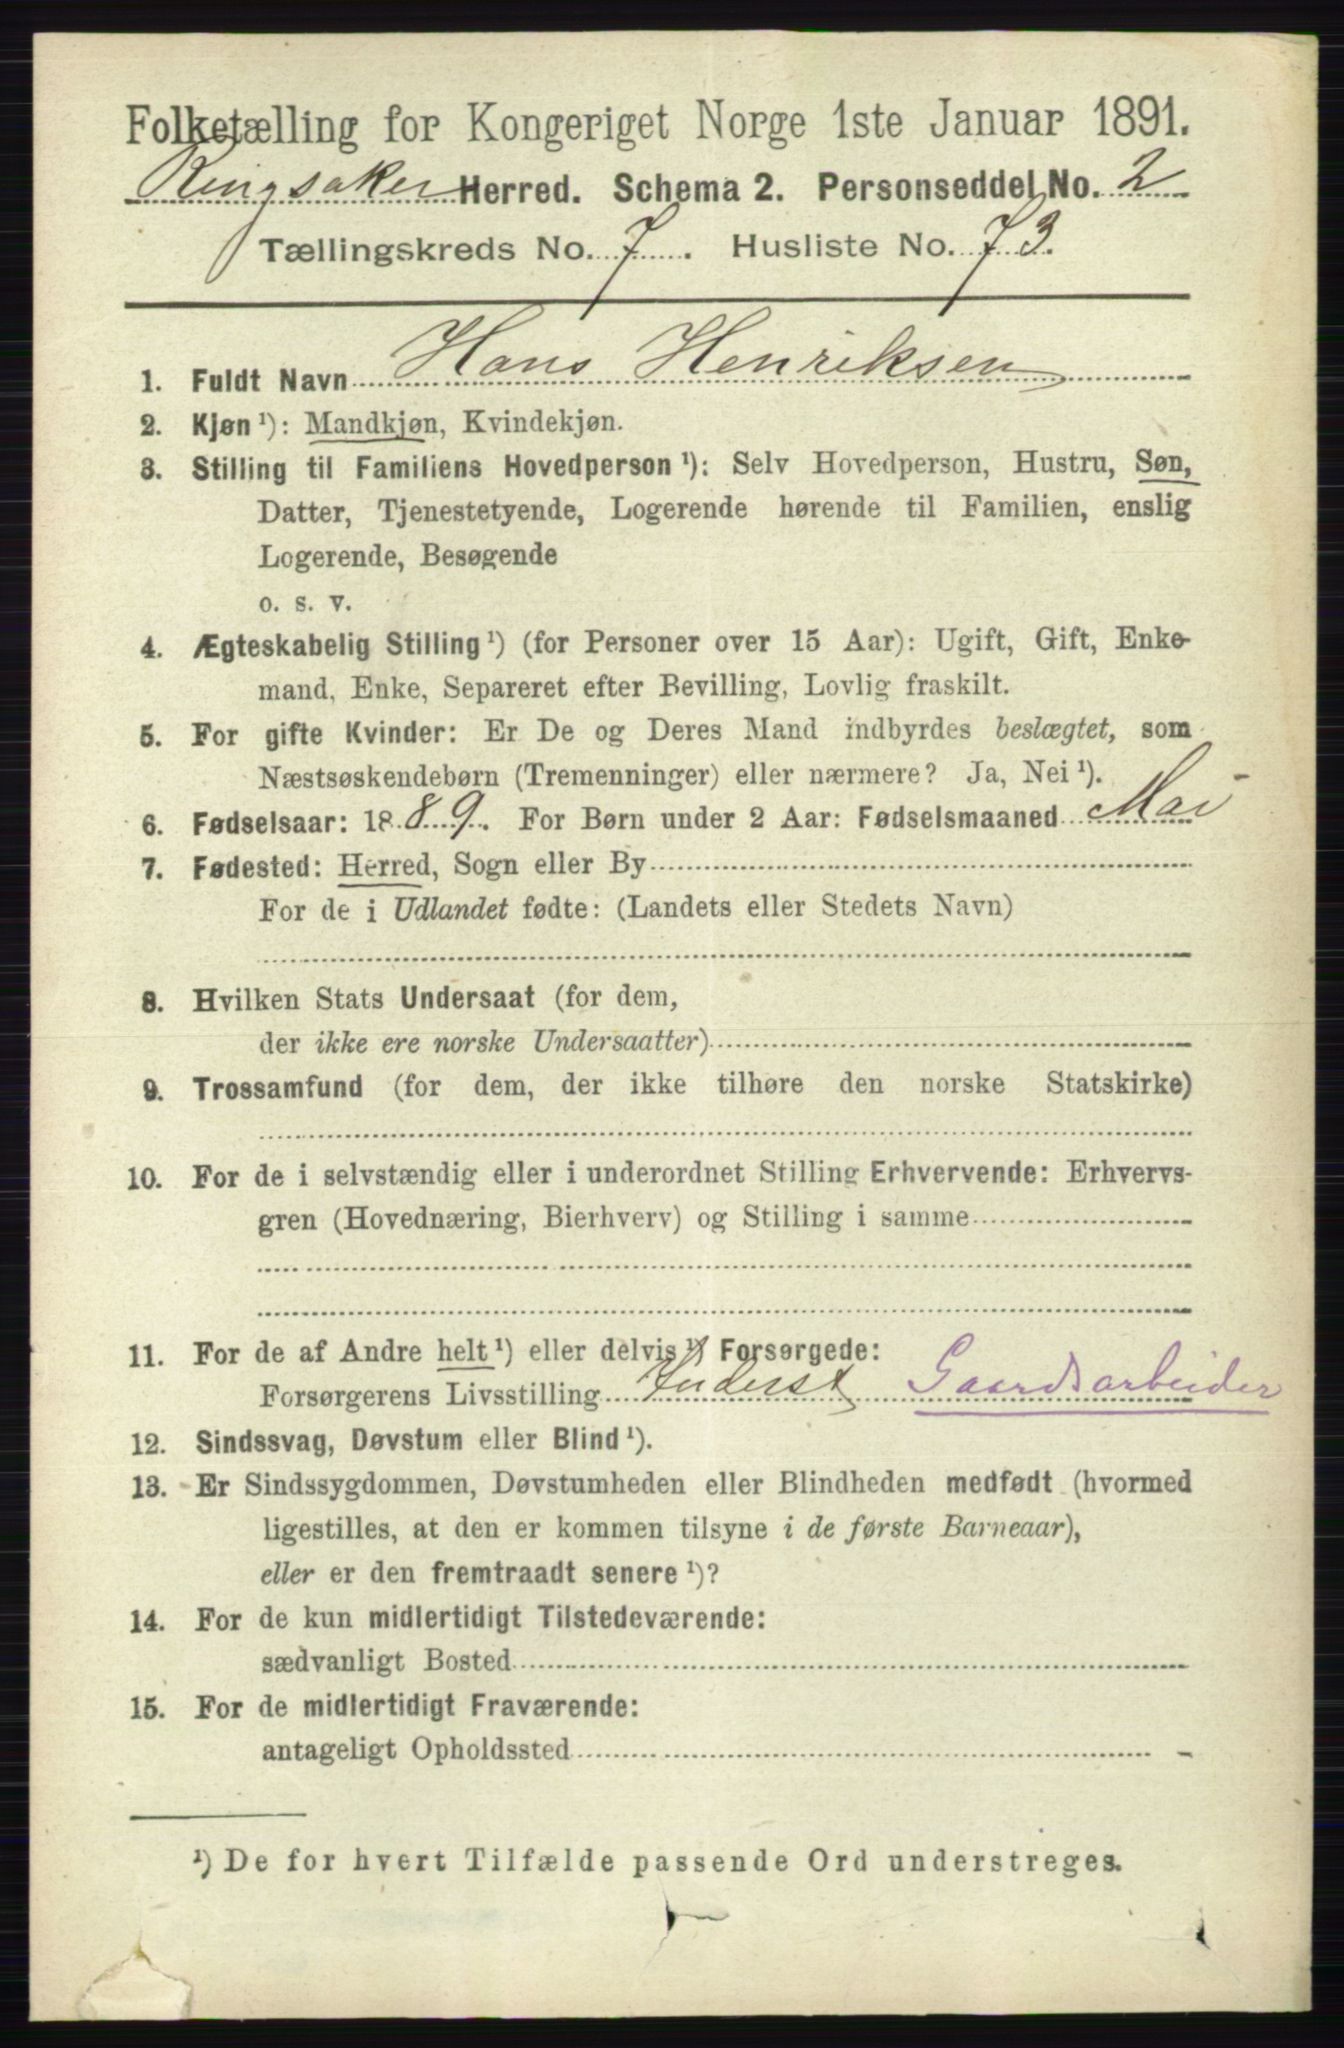 Folketælling for Kongeriget Norge 1ste Januar 1891.
Ringsaker Herred. Schema 2. Personseddel No. 2
Tællingskreds No. 7. Husliste No. 73.
1. Fuldt Navn Hans Henriksen
2. Kjøn ¹): Mandkjøn, Kvindekjøn.
3. Stilling til Familiens Hovedperson ¹): Selv Hovedperson, Hustru, Søn,
Datter, Tjenestetyende, Logerende hørende til Familien, enslig
Logerende, Besøgende
o. s. v.
4. Ægteskabelig Stilling ¹) (for Personer over 15 Aar): Ugift, Gift, Enke-
mand, Enke, Separeret efter Bevilling, Lovlig fraskilt.
5. For gifte Kvinder: Er De og Deres Mand indbyrdes beslægtet, som
Næstsøskendebørn (Tremenninger) eller nærmere? Ja, Nei ¹).
6. Fødselsaar: 1889. For Børn under 2 Aar: Fødselsmaaned Mai
7. Fødested: Herred, Sogn eller By
For de i Udlandet fødte: (Landets eller Stedets Navn)
8. Hvilken Stats Undersaat (for dem,
der ikke ere norske Undersaatter)
9. Trossamfund (for dem, der ikke tilhøre den norske Statskirke)
10. For de i selvstændig eller i underordnet Stilling Erhvervende: Erhvervs-
gren (Hovednæring, Bierhverv) og Stilling i samme
11. For de af Andre helt ¹) eller delvis ¹) Forsørgede:
Forsørgerens Livsstilling Inderst Gaardsarbeider
12. Sindssvag, Døvstum eller Blind ¹).
13. Er Sindssygdommen, Døvstumheden eller Blindheden medfødt (hvormed
ligestilles, at den er kommen tilsyne i de første Barneaar),
eller er den fremtraadt senere ¹)?
14. For de kun midlertidigt Tilstedeværende:
sædvanligt Bosted
15. For de midlertidigt Fraværende:
antageligt Opholdssted
¹) De for hvert Tilfælde passende Ord understreges.